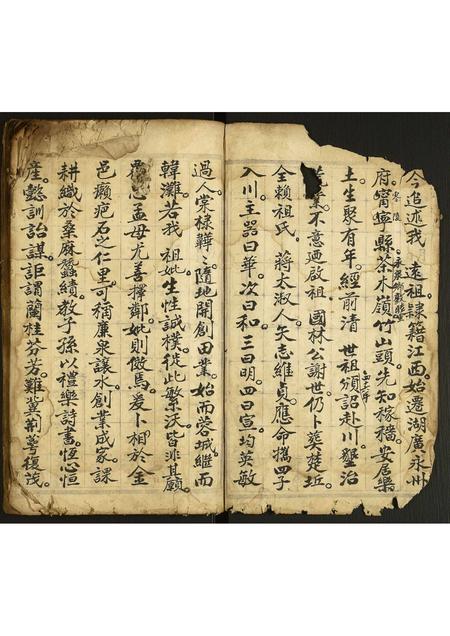 今追述我 遠祖隸籍江西始遷湖廣永州
府零陵寧縣茶木嶺竹山頭先知稼穡安居樂
土生聚有年經前清 世祖頒詔赴川墾治
業不意迺啟祖 國林公謝世仍卜葬楚坵
全賴祖氏 蔣太淑人矢志維貞應命攜四子
入川主器曰華次曰和三曰明四曰宣均英敏
過人棠棣韡〻隨地開創田業始而蓉城繼而
韓灘若我 祖妣生性誠樸從此繁沃皆非其願
心孟母尤善擇鄰妣則傚焉爰卜相於金
邑癩疤石之仁里可稱廉泉讓水創業成家課
耕織於桑麻蠶績教子孫以禮樂詩書恆心恒
產懿訓詒謀詎謂蘭桂芬芳難冀荊萼復茂